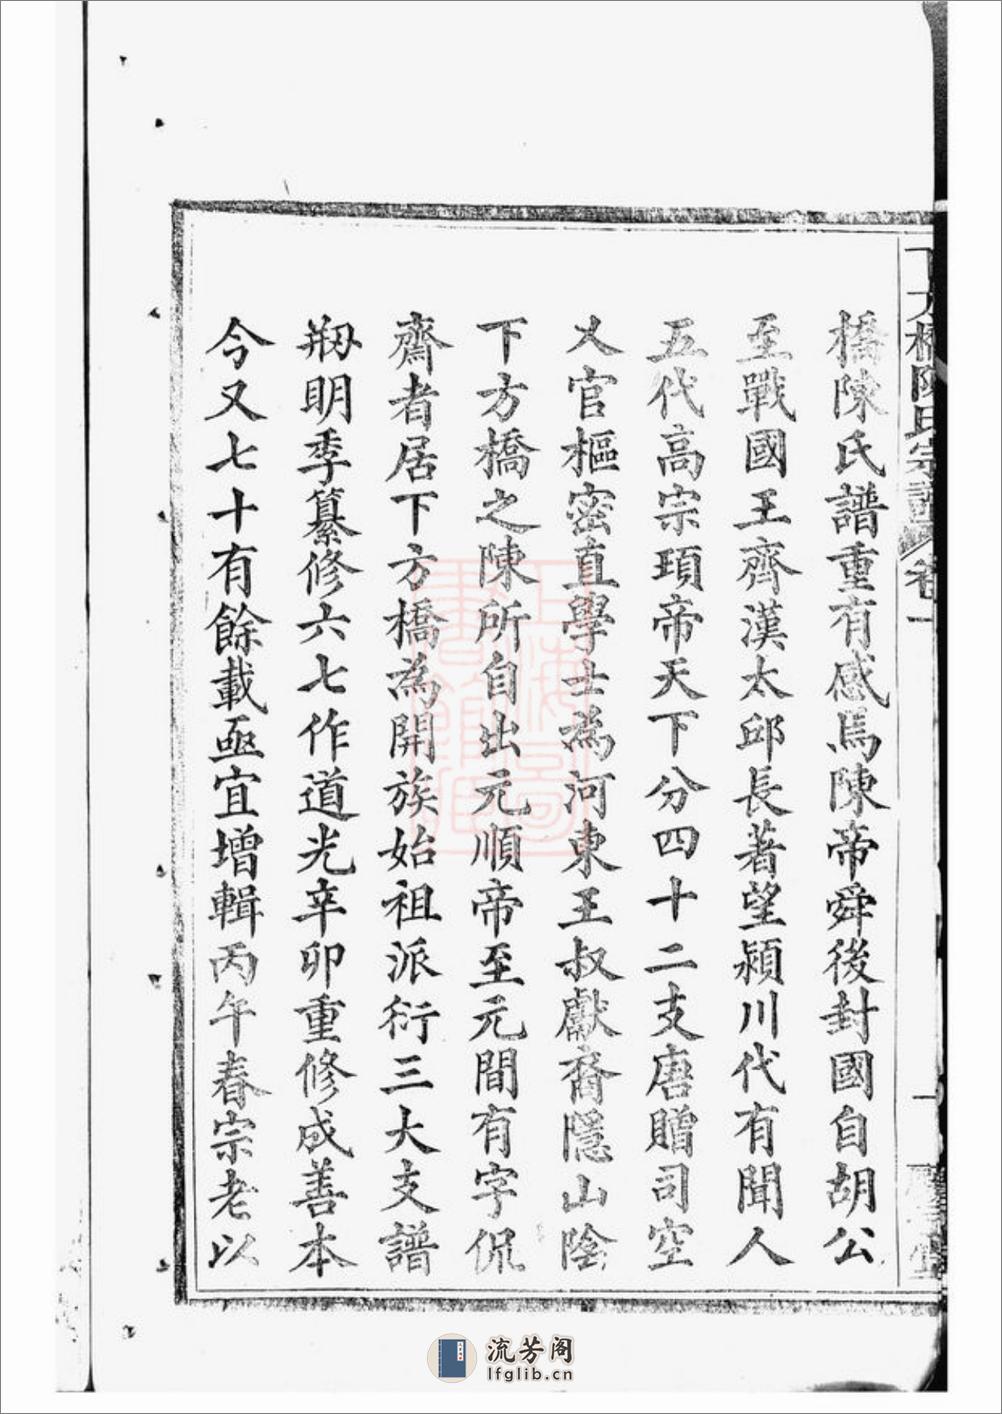 下方橋陳氏宗譜 卷一
橋陳氏譜重有感焉陳帝舜後封國自胡公
至戰國王齊漢太邱長著望潁川代有聞人
五代高宗頊帝天下分四十二支唐贈司空
乂官樞密直學士為河東王叔獻裔隱山陰
下方橋之陳所自出元順帝至元間有字侃
齋者居下方橋為開族始祖派衍三大支譜
剏明季纂修六七作道光辛卯重修成善本
今又七十有餘載亟宜增輯丙午春宗老以
上海圖書館藏
流芳阁
lfglib.cn